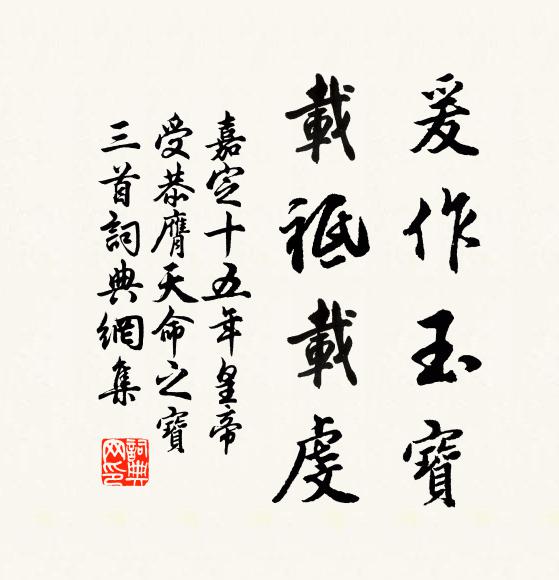 爰作玉寶
載祗載虔
嘉定十五年皇帝
受恭膺天命之寶
三首詞典網集
詞典網印